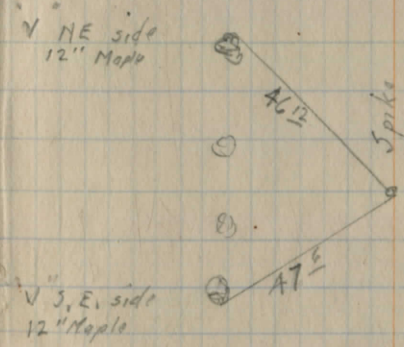 "V" NE side
12" Maple
46 12
Spike
47 6
"V" S.E. side
12" Maple